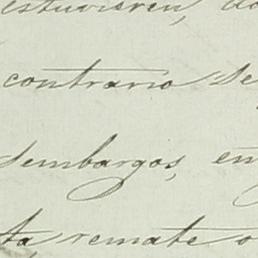 estuvieren, do
contrario se
sembargos, en
ta, remate o